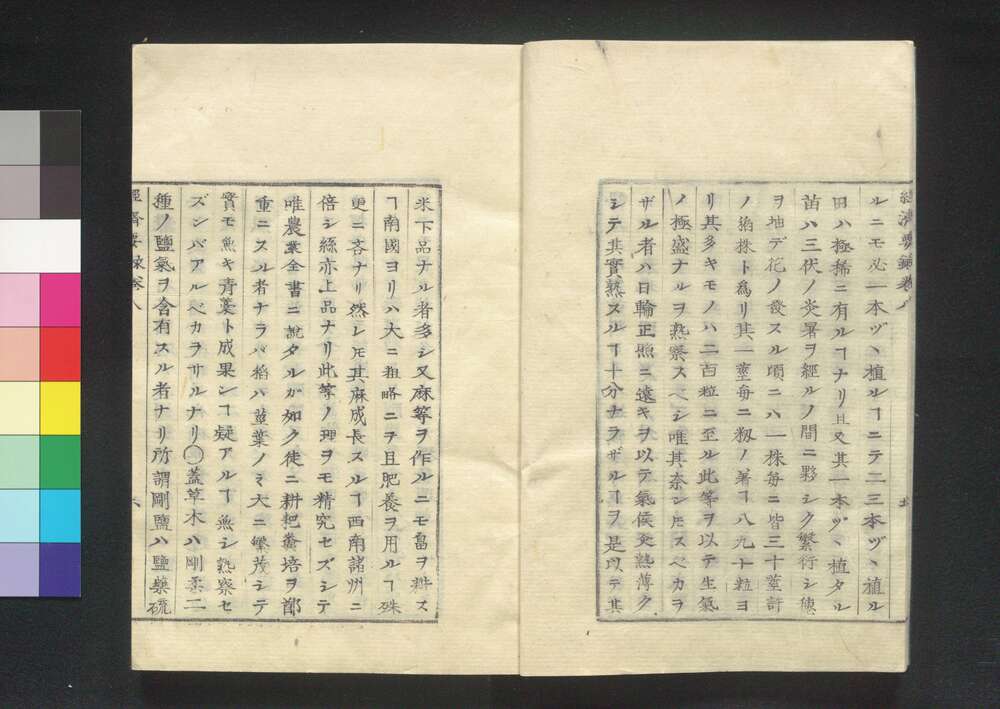 經濟要錄卷八
ルニモ必一本ヅヽ植ルヿニテ二三本ヅヽ植ル
田ハ極稀ニ有ルヿナリ且又其一本ヅヽ植タル
苗ハ三伏ノ炎暑ヲ經ルノ間ニ夥シク繁衍シ穗
ヲ抽デ花ノ發スル頃ニハ一株每ニ皆三十莖許
ノ稻株ト爲リ其一莖每ニ籾ノ著ヿ八九十粒ヨ
リ其多キモノハ二百粒ニ至ル此等ヲ以テ生氣
ノ極盛ナルヲ熟察スベシ唯其奈ン𪜈スベカラ
ザル者ハ日輪正照ニ遠キヲ以テ氣候炎熱薄ク
シテ其實熟スルヿ十分ナラザルヿヲ是以テ其
米下品ナル者多シ又麻等ヲ作ルニモ畠ヲ耕ス
ヿ南國ヨリハ大ニ粗略ニテ且肥養ヲ用ルヿ殊
更ニ吝ナリ然レ𪜈其麻成長スルヿ西南諸州ニ
倍シ絲亦上品ナリ此等ノ理ヲモ精究セズシテ
唯農業全書ニ說タルガ如ク徒ニ耕耙糞培ヲ鄭
重ニスル者ナラバ稻ハ莖葉ノミ大ニ繁茂シテ
實モ無キ靑藁ト成果ンヿ疑アルヿ無シ熟察セ
ズンバアルベカラサルナリ○蓋草木ハ剛柔二
種ノ鹽氣ヲ含有スル者ナリ所謂剛鹽ハ鹽藥硫
經濟要錄卷八